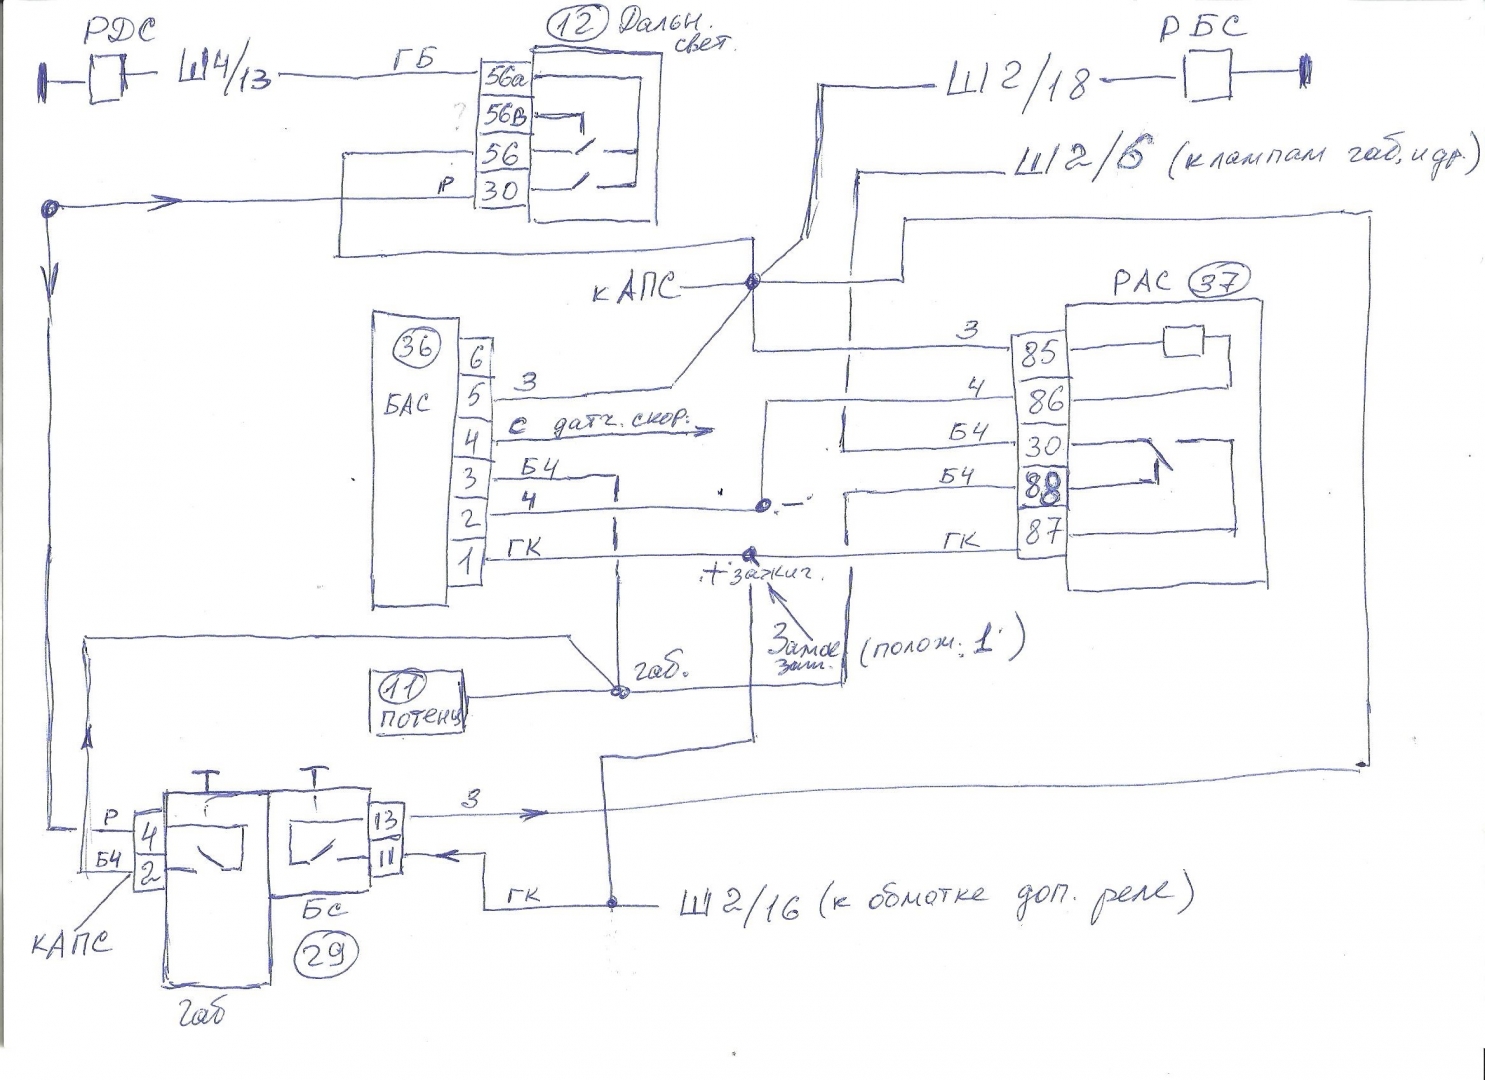 РДС
Ш4/13
ГБ
12 Дальн.
свет.
56а
56в
56
30
Р
РБС
Ш2/18
Ш2/6 (к лампам габ. и др.)
к АПС
РАС 37
36
БАС
6
5
4
3
2
1
З
С датч. скор.
БЧ
Ч
ГК
З
Ч
БЧ
БЧ
ГК
85
86
30
88
87
+ зажиг.
Замок
заж.
(полож. 1)
габ.
11
потенц
Р
БЧ
4
2
13
11
З
ГК
Ш2/16 (к обмотке доп. реле)
к АПС
БС
29
Габ